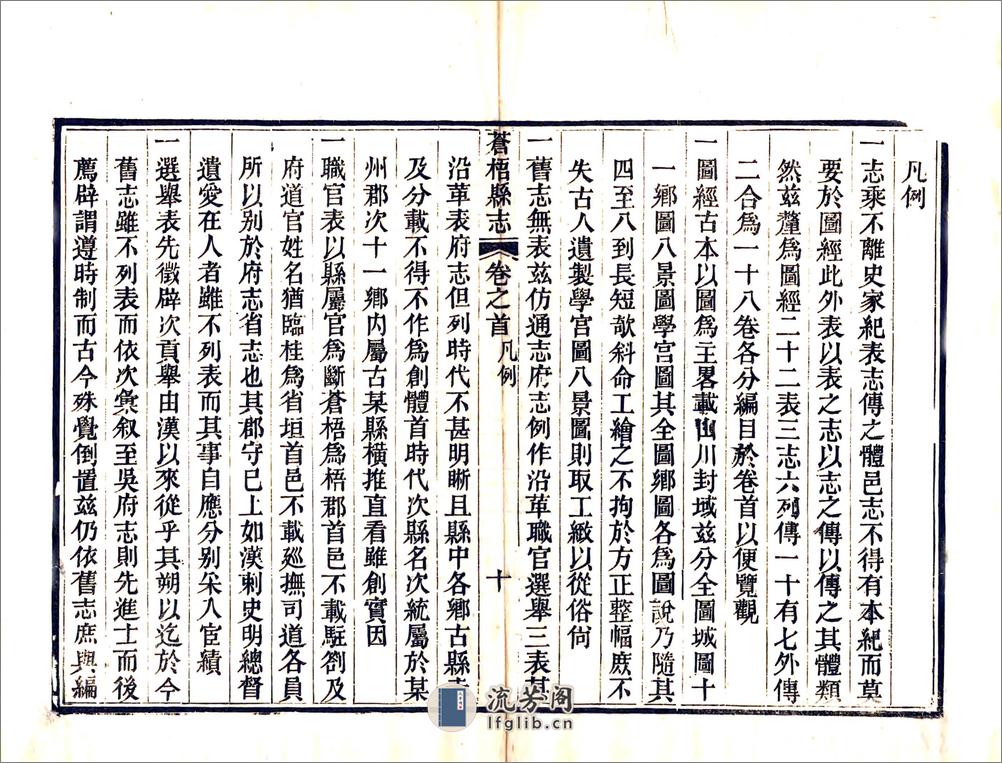 凡例
一志乘不離史家紀表志傳之體邑志不得有本紀而莫
要於圖經此外表以表之志以志之傳以傳之其體類
然茲釐爲圖經二十二表三志六列傳一十有七外傳
二合爲一十八卷各分編目於卷首以便覽觀
一圖經古本以圖爲主畧載山川封域茲分全圖城圖十
一鄉圖八景圖學宮圖其全圖鄉圖各爲圖說乃隨其
四至八到長短欹斜命工繪之不拘於方正整幅庶不
失古人遺製學宮圖八景圖則取工緻以從俗尙
一舊志無表茲仿通志府志例作沿革職官選舉三表其
蒼梧縣志 卷之首 凡例 十
沿革表府志但列時代不甚明晰且縣中各鄉古縣
及分載不得不作爲創體首時代次縣名次統屬於某
州郡次十一鄉內屬古某縣橫推直看雖創實因
一職官表以縣屬官爲斷蒼梧爲梧郡首邑不載駐劄及
府道官姓名猶臨桂爲省垣首邑不載廵撫司道各員
所以別於府志省志也其郡守已上如漢刺史明總督
遺愛在人者雖不列表而其事自應分别采入宦績
一選舉表先徵辟次貢舉由漢以來從乎其朔以迄於今
舊志雖不列表而依次彙叙至吳府志則先進士而後
薦辟謂遵時制而古今殊覺倒置茲仍依舊志庶與編
流芳阁
lfglib.cn